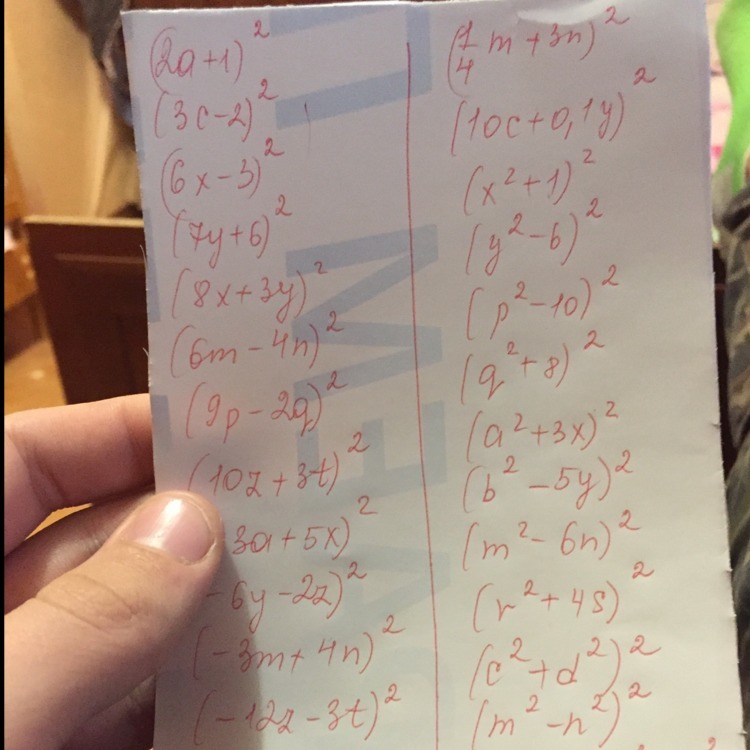 (2a+1)²
(3c-2)²
(6x-3)²
(7y+6)²
(8x+3y)²
(6m-4n)²
(9p-2q)²
(10z+3t)²
3a+5x)²
-6y-2z)²
(-3m+4n)²
(-12z-3t)²
(1/4 m+3n)²
(10c+0,1y)²
(x²+1)²
(y²-6)²
(p²-10)²
(q²+8)²
(a²+3x)²
(b²-5y)²
(m²-6n)²
(r²+4s)²
(c²+d²)²
(m²-n²)²